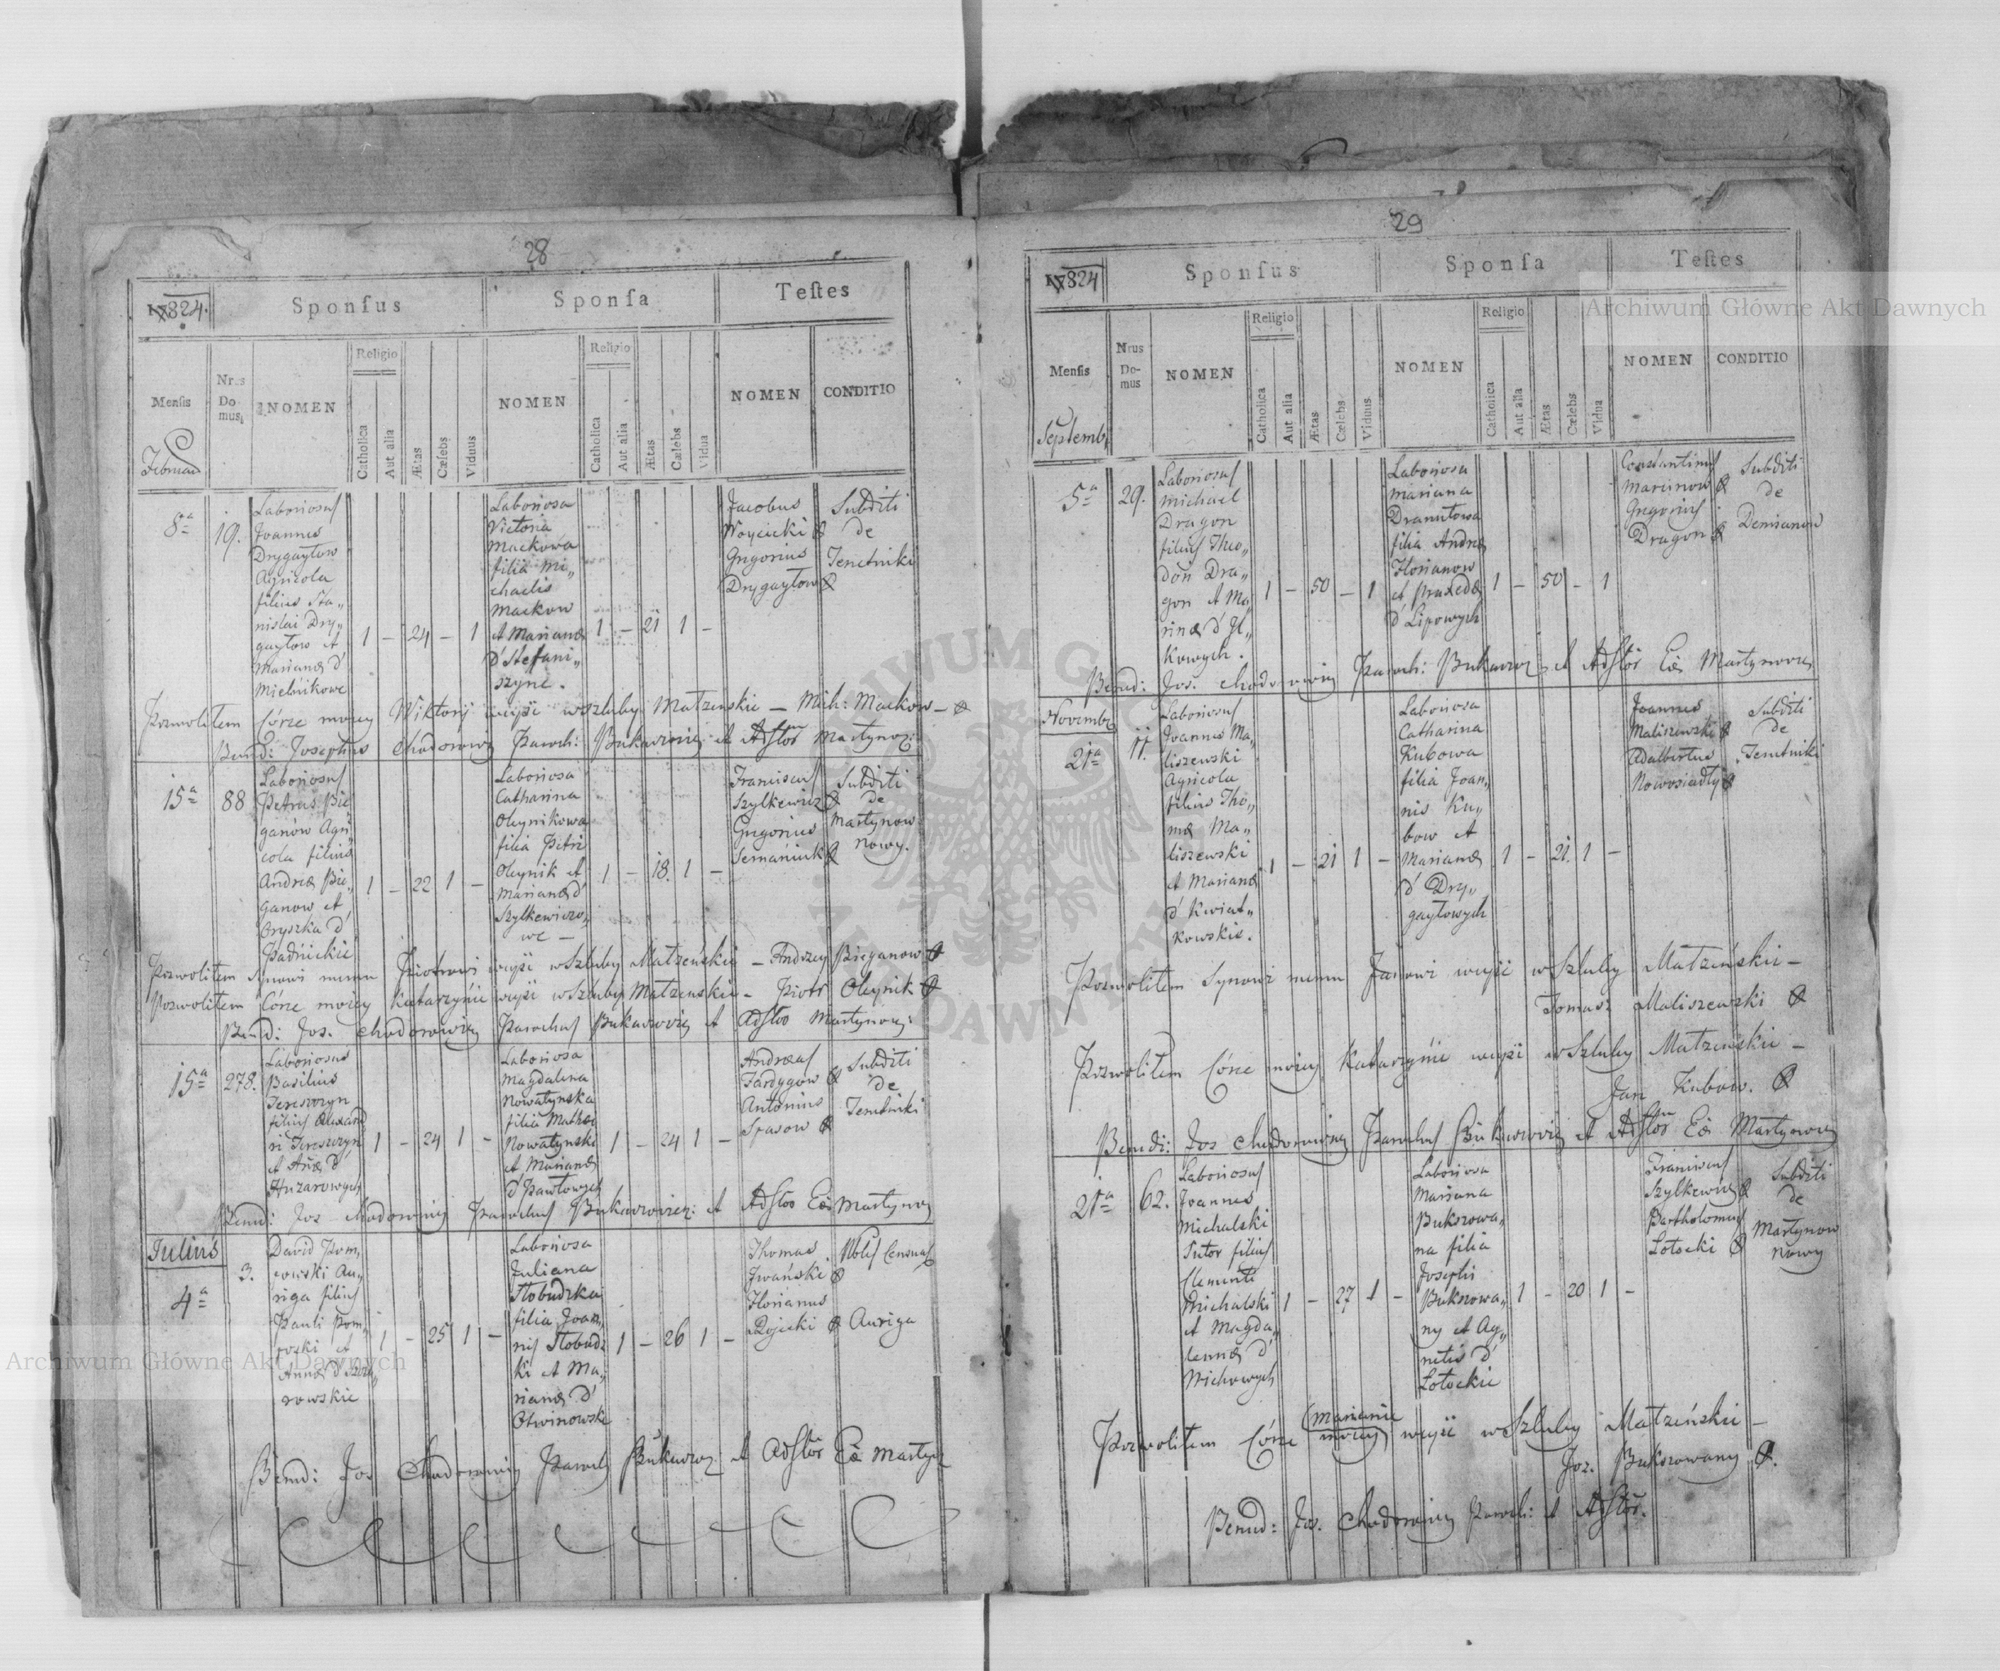 28
1824.
Sponsus
Sponsa
Testes
Mensis
Nrus Domus
NOMEN
Religio
Catholica
Aut alia
Ætas
Cælebs
Viduus
NOMEN
Religio
Catholica
Aut alia
Ætas
Cælebs
Vidua
NOMEN
CONDITIO
8ª
19.
Laboriosus
Joannes
Drygaytow
Agricola
filius Sta„
nislai Dry„
gaytow et
Marianæ d'
Mielnikowe
1 – 24 – 1
Laboriosa
Victoria
Mackowa
filia Mi„
chaelis
Mackow
et Marianæ
d'Stefani„
szyne.
1 – 21 1 –
Jacobus
Woycicki
Gregorius
Drygaytow
Subditi
de
Tenetniki
Pozwolitem Córce moiey Wiktoryi wejść w Szluby Małzenskie – Mich: Mackow –
Bened: Josephus Chodorowicz Paroch: et Adstor
15ª
88
Laboriosus
Petrus Bie
ganów Agri
cola filius
Andreæ Bie„
ganow et
Oryszka d'
Padnickie
1 – 22 1 –
Laboriosa
Catharina
Oleynikowa
filia Petri
Oleynik et
Marianæ d'
Szylkewiczo„
we –
1 – 18. 1 –
Franciscus
Szylkewicz
Gregorius
Semaniuk
Subditi
de
Martynow
Nowy.
Pozwolitem Synowi memu Piotrowi wejść w Szluby Małzenskie – Andrzey Bieganow
Pozwolitem Córce moiey Katarzynie wejść w Szluby Małzenskie – Piotr Oleynik
Bened: Jos. Chodorowicz Parochus et Adstor
15ª
278.
Laboriosus
Basilius
Tereszczyn
filius
et Annæ d'
Huzarowych
1 – 24 1 –
Laboriosa
Magdalena
Nowatynska
filia Mathæi
Nowatynski
et Marianæ
d'Pawłowych
1 – 24 1 –
Andreas
Antonius
Spasow
Subditi
de
Tenetniki
Bened: Jos Chodorowicz Parochus et Adstor
Julius
4ª
3.
David Pom„
orski Au„
riga filius
Pauli Pom„
orski et
Annæ d'
rowskie
1 – 25 1 –
Laboriosa
Juliana
Słobudzka
filia Joan„
nis Słobudz
ki et Ma„
rianæ d'
Otwinowske
1 – 26 1 –
Thomas
Iwański
Florianus
Nobles Censuas
Auriga
Bened: Jos Chodorowicz Paroch et Adstor
29
1824
Sponsus
Sponsa
Testes
Mensis
Nrus Domus
NOMEN
Religio
Catholica
Aut alia
Ætas
Cælebs
Viduus
NOMEN
Religio
Catholica
Aut alia
Ætas
Cælebs
Vidua
NOMEN
CONDITIO
Septemb.
5ª
29.
Laboriosus
Michael
Dragon
filius Theo„
dori Dra„
gon et Ma„
rinæ d'
kowych.
1 – 50 – 1
Laboriosa
Mariana
filia Andreæ
Florianow
et Praxedæ
d'Lipowych
1 – 50 – 1
Constantinus
Marcinow
Gregorius
Dragon
Subditi
de
Demianow
Bened: Jos. Chodorowicz Paroch: et Adstor
Novembr.
21ª
11.
Laboriosus
Joannes Ma„
liszewski
Agricola
filius Tho„
mæ Ma„
liszewski
et Marianæ
d'Kwiat„
kowskie.
1 – 21 1 –
Laboriosa
Catharina
Kubowa
filia Joan„
nis Ku„
bow et
Marianæ
d'Dry„
gaytowych
1 – 21. 1 –
Joannes
Maliszewski
Adalbertus
Nowosiadły
Subditi
de
Tenetniki
Pozwolitem Synowi memu Janowi wejść w Szluby Małzeńskie –
Tomasz Maliszewski
Pozwolitem Córce moiey Katarzynie wejść w Szluby Małzeńskie –
Jan Kubow.
Bened: Jos Chodorowicz Parochus et Adstor
21ª
62.
Laboriosus
Joannes
Michalski
Sutor filius
Clementi
Michalski
et Magda„
lennæ d'
Michowych
1 – 27 1 –
Laboriosa
Mariana
Bukszowa„
na filia
Josephi
Bukszowa„
ny et Ag„
netis d'
Łotockie
1 – 20 1 –
Franciscus
Szylkewicz
Bartholomeus
Łotocki
Subditi
de
Martynow
Nowy
Pozwolitem Córce moiey Marianie wejść w Szluby Małzeńskie –
Joz. Bukszowany
Bened: Jos. Chodorowicz Paroch: et Adstor.
Archiwum Główne Akt Dawnych
Archiwum Główne Akt Dawnych